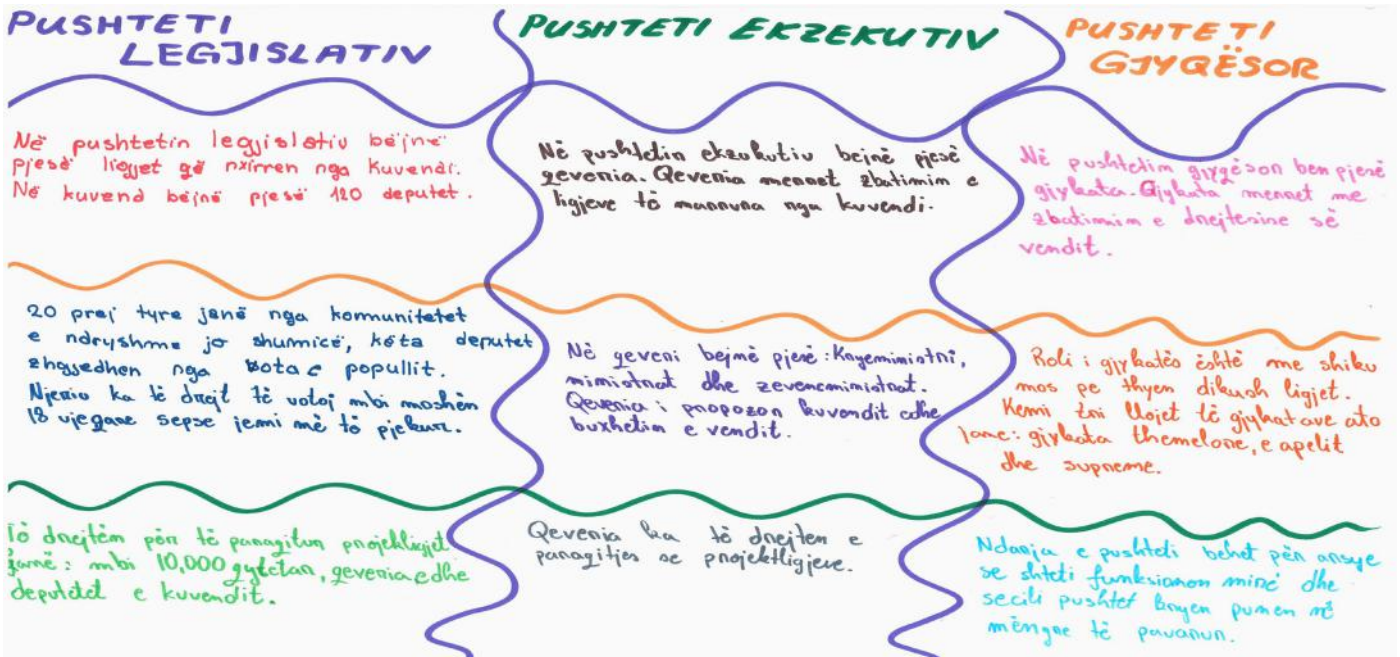 PUSHTETI
LEGJISLATIV
Në pushtetin legjislativ bëjnë
pjesë ligjet që nxirren nga kuvendi.
Në kuvend bëjnë pjesë 120 deputet.
20 prej tyre janë nga komunitetet
e ndryshme jo shumicë, këta deputet
zhgjedhen nga vota e popullit.
Njeriu ka të drejt të votoj mbi moshën
18 vjeqare sepse jemi më të pjekur.
Të drejtëm për të paraqitur projekligjet
janë: mbi 10,000 qytetar, qeveria edhe
deputetët e kuvendit.
PUSHTETI EKZEKUTIV
Në pushtetin ekzekutiv bejnë pjesë
qeveria. Qeveria merret zbatimim e
ligjeve të marruna nga kuvendi.
Në qeveri bejnë pjesë: Kryeministri,
ministrat dhe zevencministrat.
Qeveria i propozon kuvendit edhe
buxhetim e vendit.
Qeveria ka të drejten e
paraqitjes se projektligjeve.
PUSHTETI
GJYQËSOR
Në pushtetim gjyqësor ben pjesë
gjykata. Gjykata merret me
zbatimim e drejtesine së
vendit.
Roli i gjykatës është me shiku
mos pe thyen dikush ligjet.
Kemi tri llojet të gjykatave ato
jane: gjykata themelore, e apelit
dhe supreme.
Ndarja e pushteti behet për arsye
se shteti funksionon mirë dhe
secili pushtet kryen punen në
mëngre të pavarur.